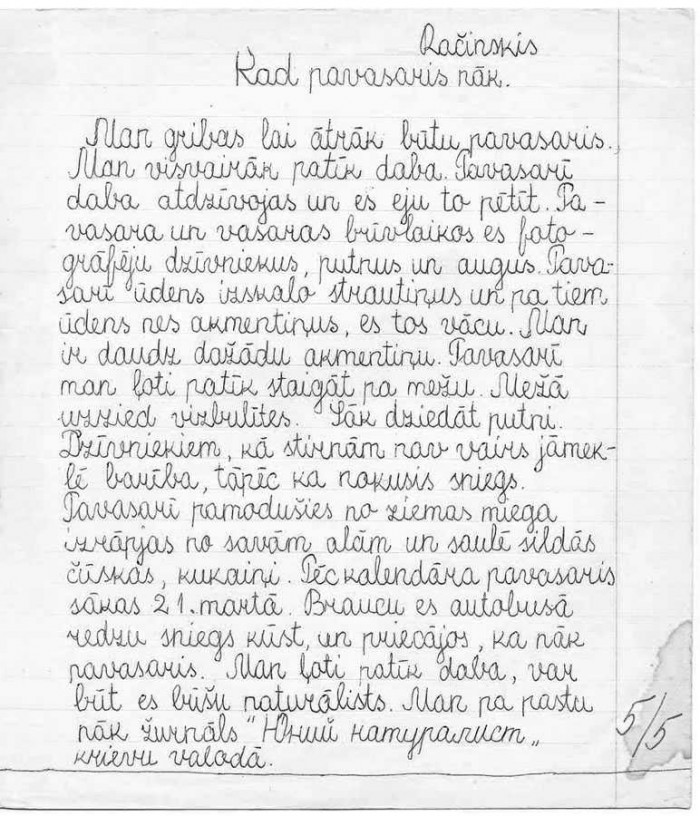 Račinskis
Kad pavasaris nāk.
Man gribas lai ātrāk būtu pavasaris.
Man visvairāk patīk daba. Pavasarī
daba atdzīvojas un es eju to pētīt. Pa-
vasara un vasaras brīvlaikos es foto-
grāfēju dzīvniekus, putnus un augus. Pava-
sarī ūdens izskalo strautiņus un pa tiem
ūdens nes akmentiņus, es tos vācu. Man
ir daudz dažādu akmentiņu. Pavasarī
man ļoti patīk staigāt pa mežu. Mežā
uzzied vizbulītes. Sāk dziedāt putni.
Dzīvniekiem, kā stirnām nav vairs jāmek-
lē barība, tāpēc ka nokusis sniegs.
Pavasarī pamodušies no ziemas miega
izrāpjas no savām alām un saulē sildās
čūskas, kukaiņi. Pēc kalendāra pavasaris
sākas 21. martā. Braucu es autobusā
redzu sniegs kūst, un priecājos, ka nāk
pavasaris. Man ļoti patīk daba, var
būt es būšu naturālists. Man pa pastu
nāk žurnāls "Юний натуралист„
krievu valodā.
5/5